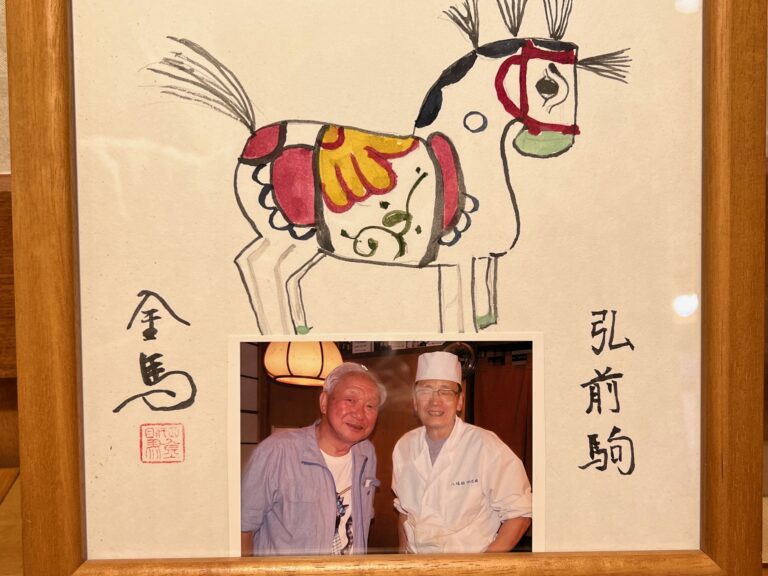 弘前駒
金馬